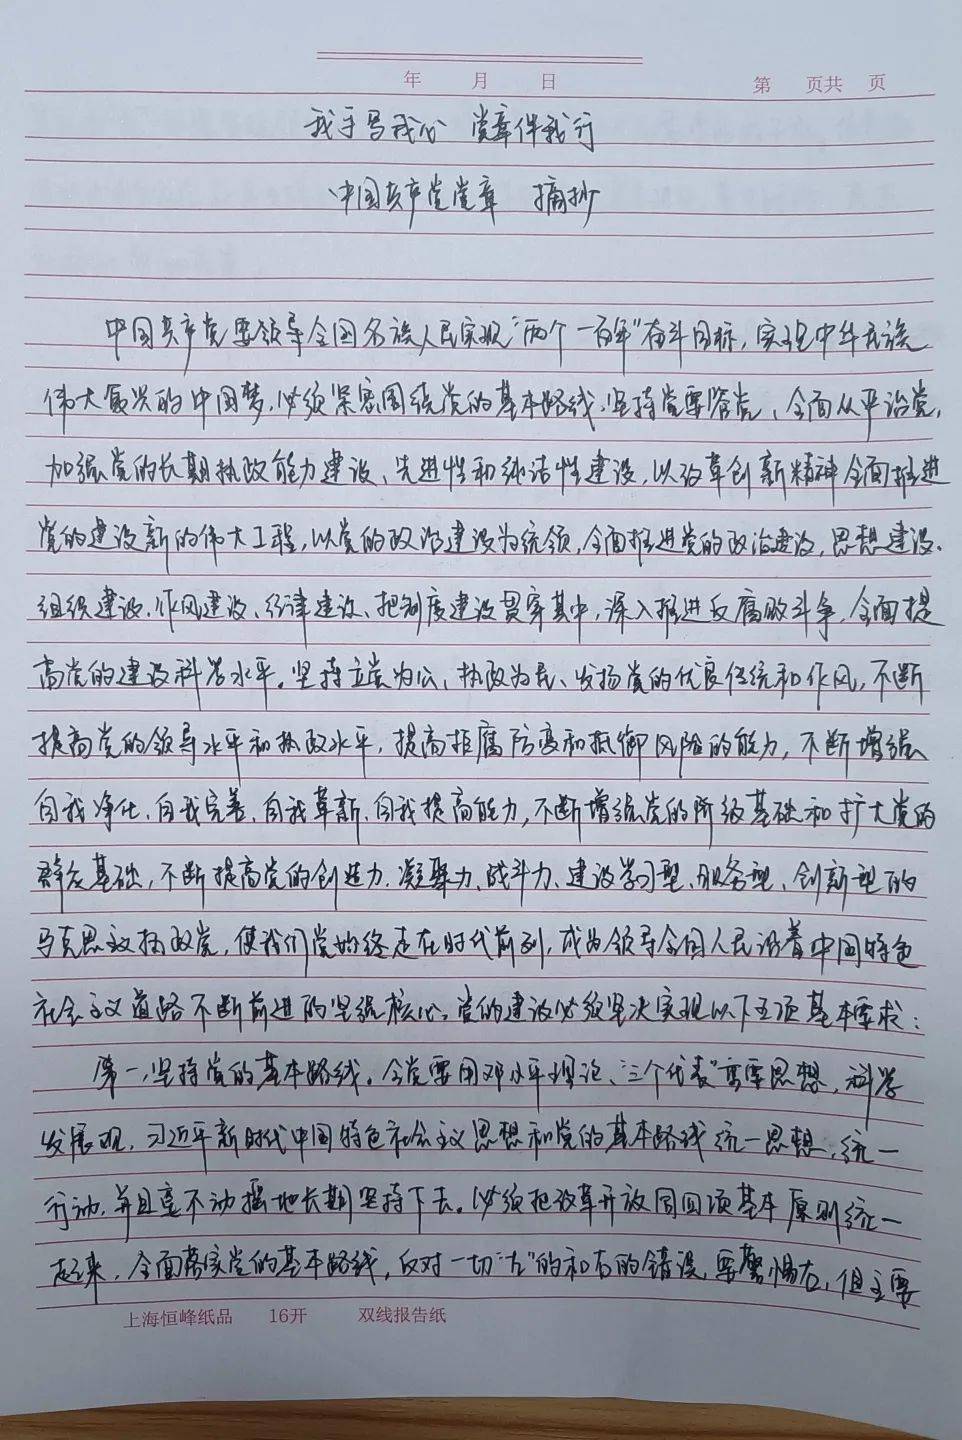 年 月 日 第 页共 页
我手写我心 党章伴我行
中国共产党党章 摘抄
中国共产党要领导全国各族人民实现“两个一百年”奋斗目标,实现中华民族
伟大复兴的中国梦,必须紧密围绕党的基本路线,坚持党要管党、全面从严治党,
加强党的长期执政能力建设、先进性和纯洁性建设,以改革创新精神全面推进
党的建设新的伟大工程,以党的政治建设为统领,全面推进党的政治建设,思想建设、
组织建设、作风建设、纪律建设、把制度建设贯穿其中,深入推进反腐败斗争,全面提
高党的建设科学水平。坚持立党为公、执政为民、发扬党的优良传统和作风,不断
提高党的领导水平和执政水平,提高拒腐防变和抵御风险的能力,不断增强
自我净化、自我完善、自我革新、自我提高能力,不断增强党的阶级基础和扩大党的
群众基础,不断提高党的创造力、凝聚力、战斗力、建设学习型、服务型、创新型的
马克思主义执政党,使我们党始终走在时代前列,成为领导全国人民沿着中国特色
社会主义道路不断前进的坚强核心。党的建设必须坚决实现以下五项基本要求:
第一,坚持党的基本路线。全党要用邓小平理论、“三个代表”重要思想,科学
发展观,习近平新时代中国特色社会主义思想和党的基本路线统一思想,统一
行动,并且毫不动摇地长期坚持下去。必须把改革开放同四项基本原则统一
起来,全面落实党的基本路线,反对一切“左”的和右的错误,要警惕右,但主要
上海恒峰纸品 16开 双线报告纸